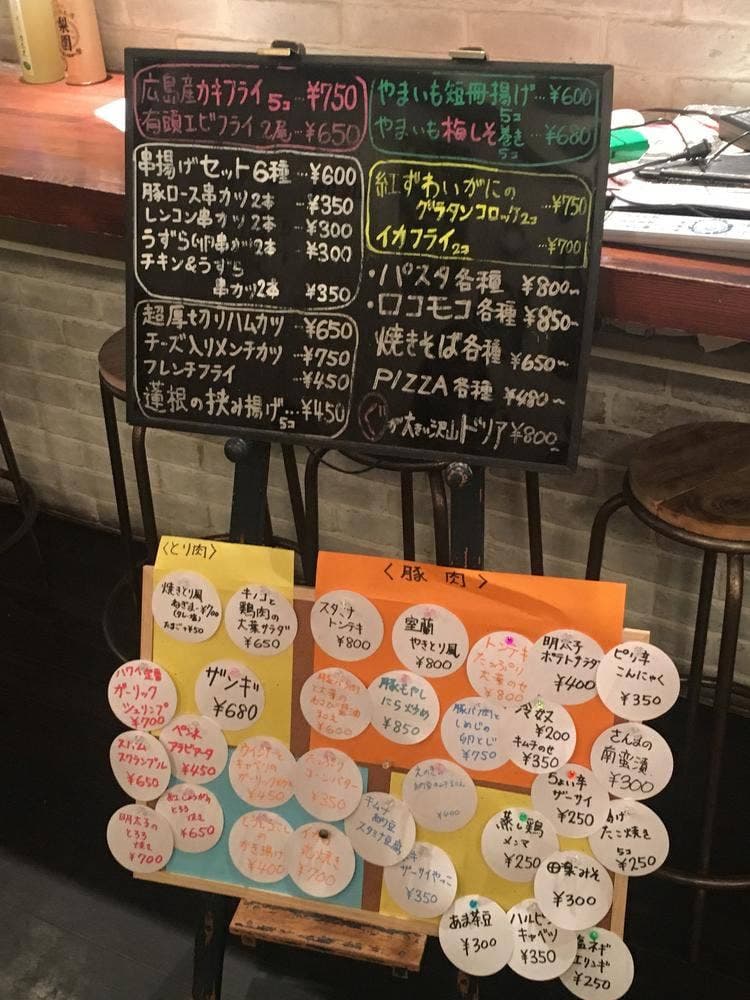 梨園
広島産カキフライ 5コ …¥750
有頭エビフライ2尾…¥650
やまいも短冊揚げ…¥600
5コ
やまいも梅しそ巻き…¥680
5コ
串揚げセット6種…¥600
豚ロース串カツ2本…¥350
レンコン串カツ2本…¥300
うずら串カツ2本…¥300
チキン&うずら
串カツ2本 ¥350
紅ずわいがにの
グラタンコロッケ2コ…¥750
イカフライ2コ…¥700
超厚切りハムカツ…¥650
チーズ入りメンチカツ…¥750
フレンチフライ…¥450
蓮根の挟み揚げ…¥450
5コ
・パスタ各種 ¥800~
・ロコモコ各種 ¥850~
焼きそば各種 ¥650~
PIZZA各種 ¥480~
ぐが大きい沢山ドリア ¥800~
<とり肉>
焼きとり風
ねぎま…¥700
(タレ・塩)
たまご+¥50
キノコと
鶏肉の
大葉サラダ
¥650
ザンギ
¥680
<豚肉>
スタミナ
トンテキ
¥800
室蘭
やきとり風
¥800
トンテキ
たっぷり
大葉のせ
¥800
明太子
ポテトサラダ
¥400
ピリ辛
こんにゃく
¥350
¥600
豚もやし
にら炒め
¥850
豚バラ肉と
しめじの
卵とじ
¥750
冷奴
¥200
キムチのせ
¥350
さんまの
南蛮漬
¥300
ハワイ定番
ガーリック
シュリンプ
¥700
スパム
スクランブル
¥650
アラビアータ
¥450
¥650
明太子の
とろろ
焼き
¥700
ウインナーと
キャベツの
¥450
コーンバター
¥350
とうもろこし
かき揚げ
¥400
¥700
キムチ
納豆
スタミナ豆腐
¥400
ザーサイやっこ
¥350
ちょい辛
ザーサイ
¥250
蒸し鶏
メンマ
¥250
揚げ
たこ焼き
5コ
¥250
田楽みそ
¥300
あま茶豆
¥300
ハルピン
キャベツ
¥350
塩ネギ
エリンギ
¥250